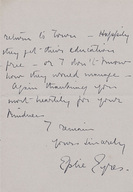 returns to town – Happily
they get their education
free – or I don't know
how they would manage –
Again thanking you
most heartily for your
kindness
I remain
Yours sincerely
Effie Eyres.